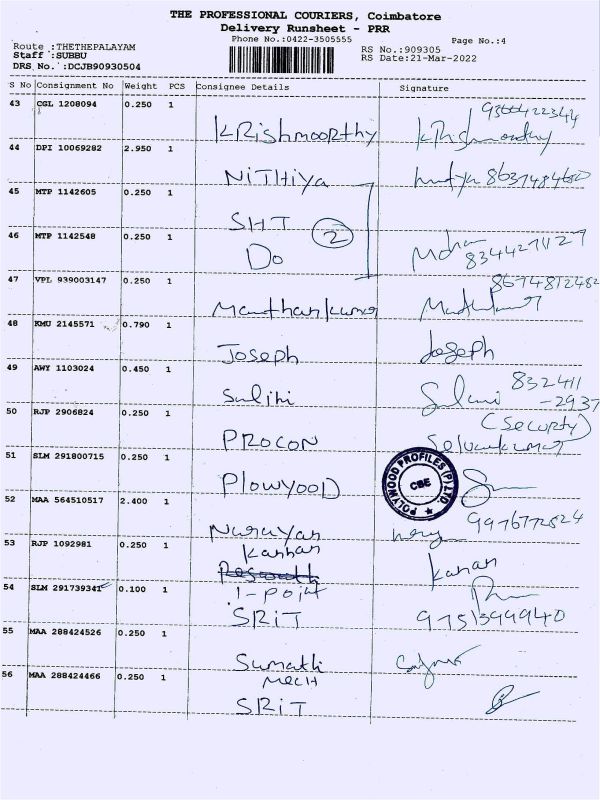 THE PROFESSIONAL COURIERS, Coimbatore
Delivery Runsheet - PRR
Phone No.:0422-3505555 Page No.:4
Route :THETHEPALAYAM RS No.:909305
Staff :SUBBU RS Date:21-Mar-2022
DRS No. :DCJB90930504
S No Consignment No Weight PCS Consignee Details Signature
43 CGL 1208094 0.250 1
KRishmoorthy
44 DPI 10069282 2.950 1
NiTHiya
45 MTP 1142605 0.250 1
SHT
46 MTP 1142548 0.250 1
Do 2
47 VPL 939003147 0.250 1 8674812482
48 KMU 2145571 0.790 1
Joseph Joseph
49 AWY 1103024 0.450 1 832411
-2937
50 RJP 2906824 0.250 1 (Security)
PROCON Selvankumar
51 SLM 291800715 0.250 1
PLOWYOOD POLYWOOD PROFILES (P) LTD. CBE
52 MAA 564510517 2.400 1
Narayan
53 RJP 1092981 0.250 1
Kannan Kanan
54 SLM 291739341 0.100 1
1-Point
SRiT 9751399940
55 MAA 288424526 0.250 1
Sumathi
56 MAA 288424466 0.250 1
MECH
SRiT